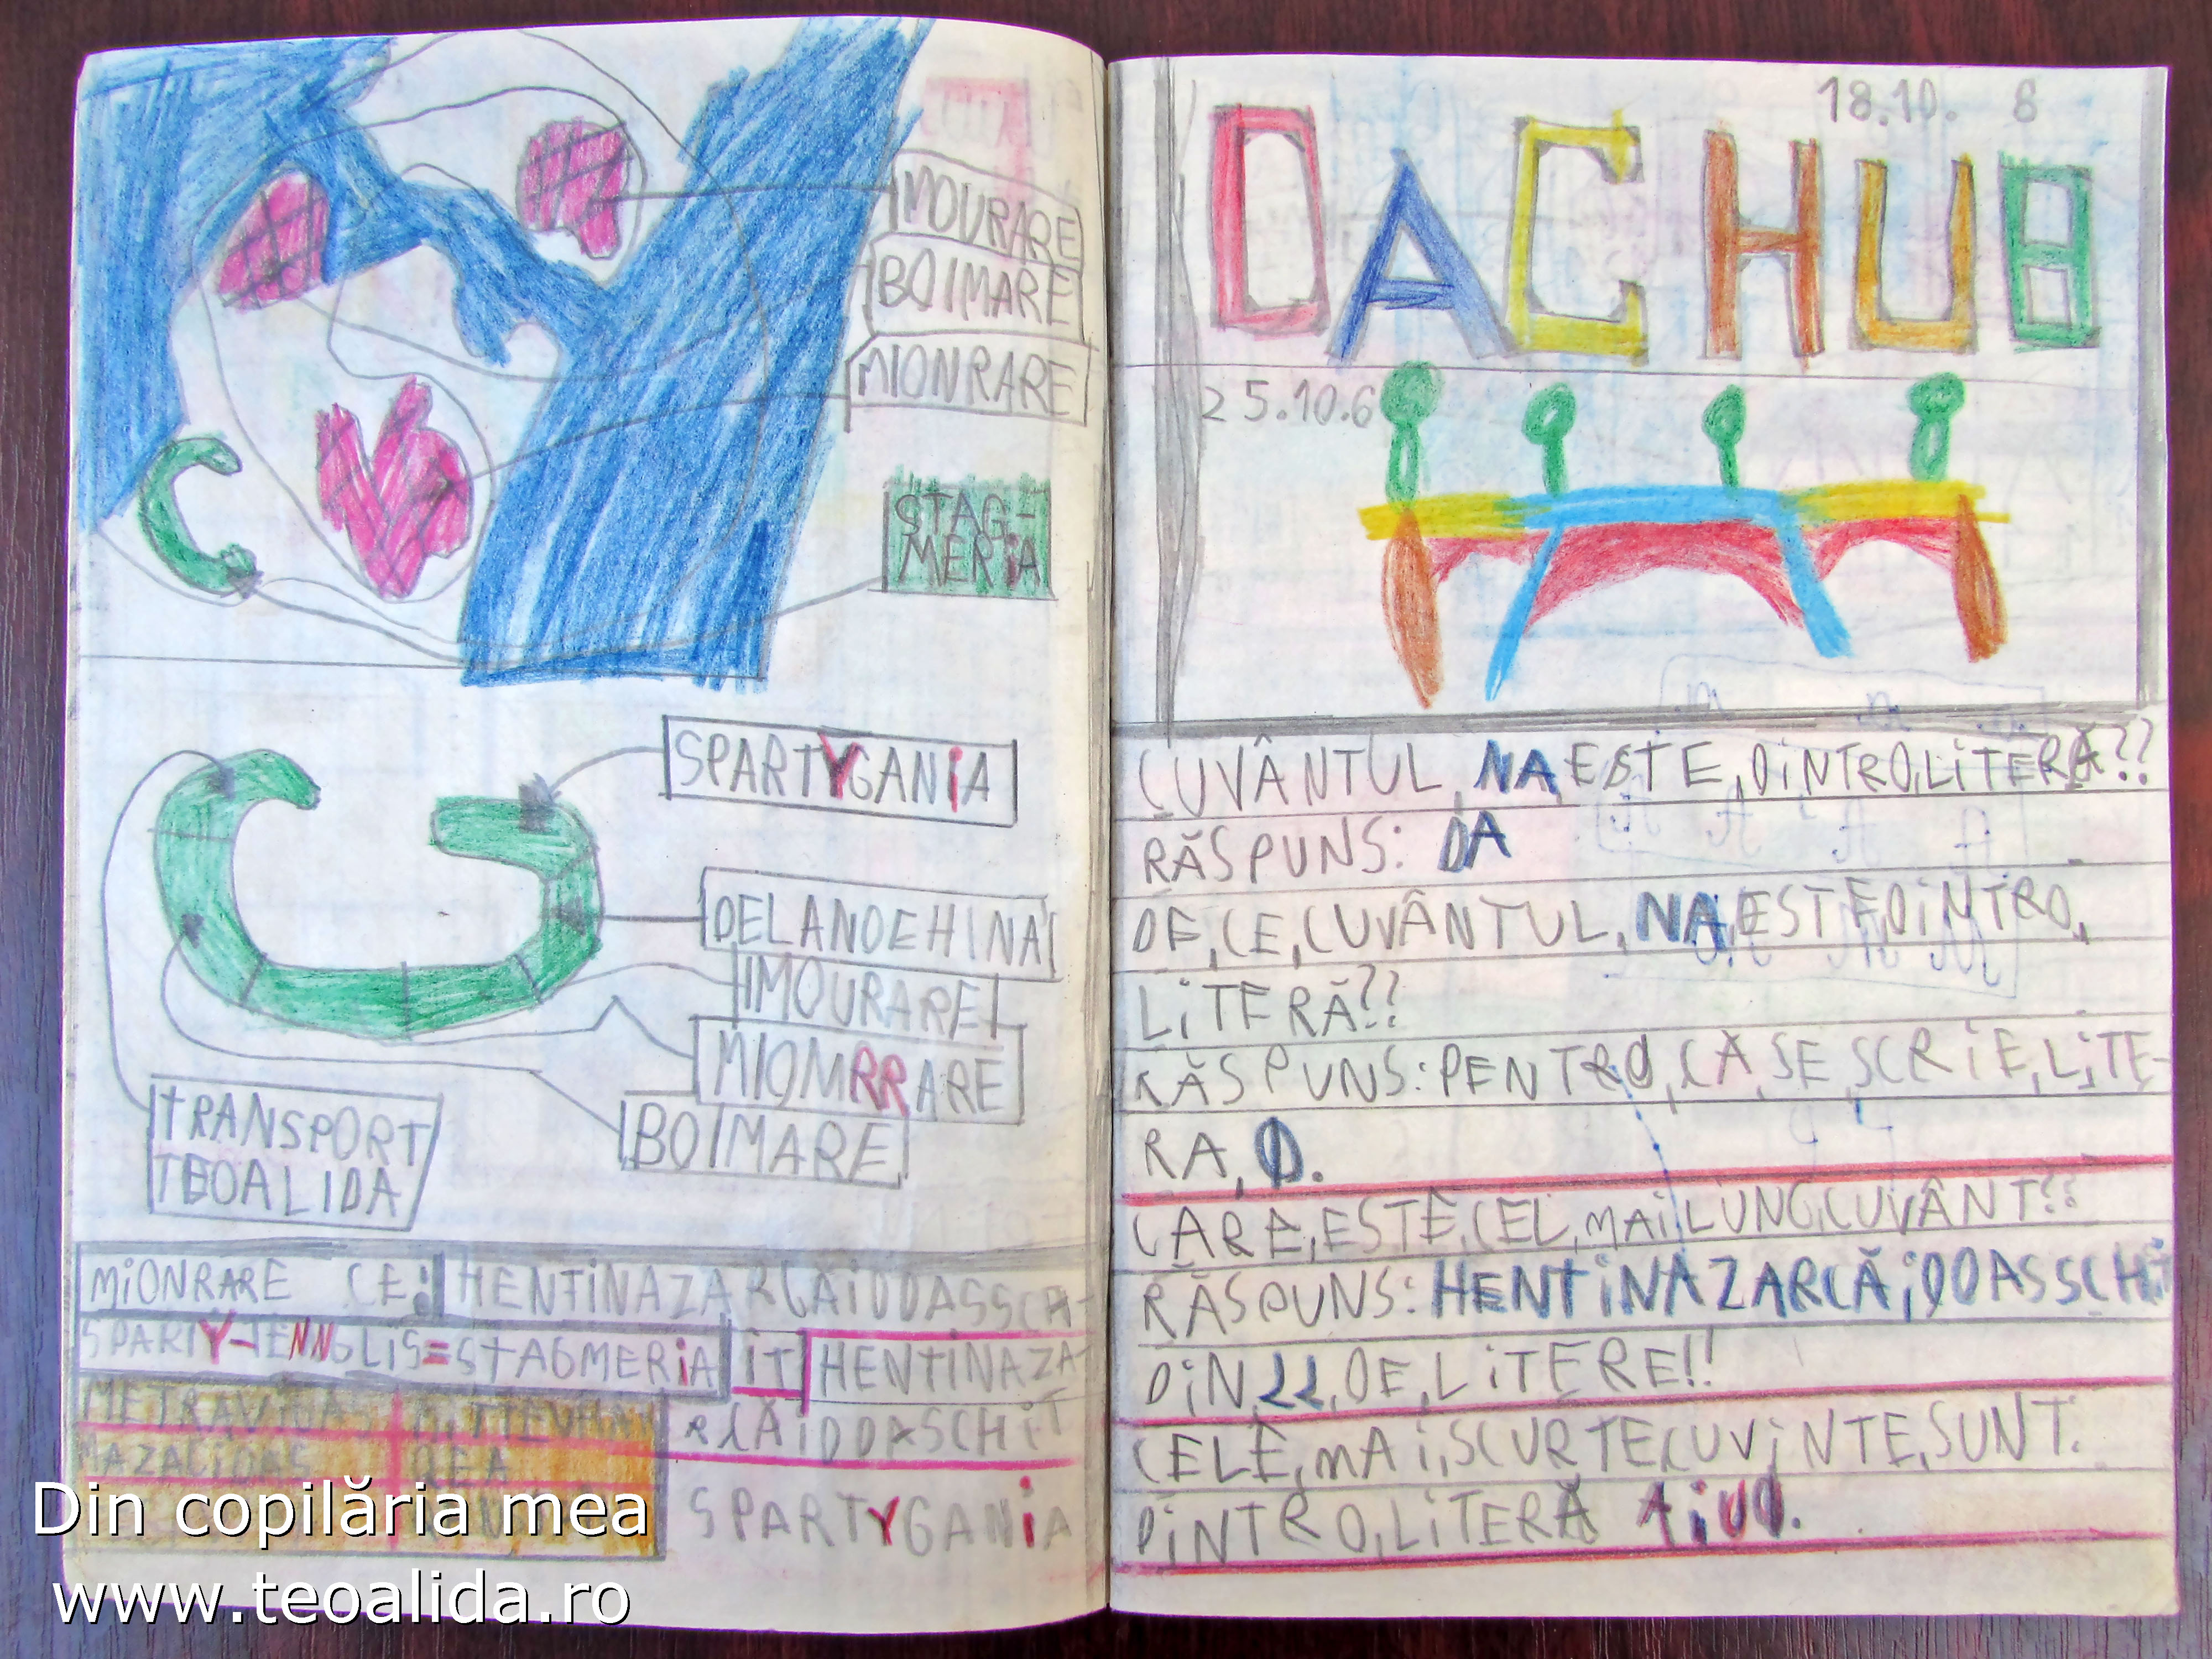 IMOURARE
BOIMARE
MIONRARE
STAG-
MERiA
SPARTYGANiA
DELANDEHINA
IMOURARE
MIOMRRARE
BOIMARE
TRANSPORT
TEOALIDA
MiONRARE CE:
SPARTY-TENNGLIS=STAGMERiA iT HENTiNAZA-
RCĂiDDASCHiT
MAZACIDAS
SPARTYGANiA
18.10. 8
DACHUB
25.10.6
CUVÂNTUL, NA, ESTE, DiNTRO, LiTERĂ??
RĂSPUNS: DA
DE, CE, CUVÂNTUL, NA, ESTE, DiNTRO,
LiTERĂ??
RĂSPUNS: PENTRO, CĂ, SE, SCRiE, LiTE-
RA,
CARE, ESTE, CEL, MAi, LUNG, CUVÂNT??
RĂSPUNS: HENTiNAZARCĂiDDASSCHiT
DiN, 22, DE, LiTERE!!
CELE, MAi, SCURTE, CUViNTE, SUNT.
DiNTRO, LiTERĂ
Din copilăria mea
www.teoalida.ro